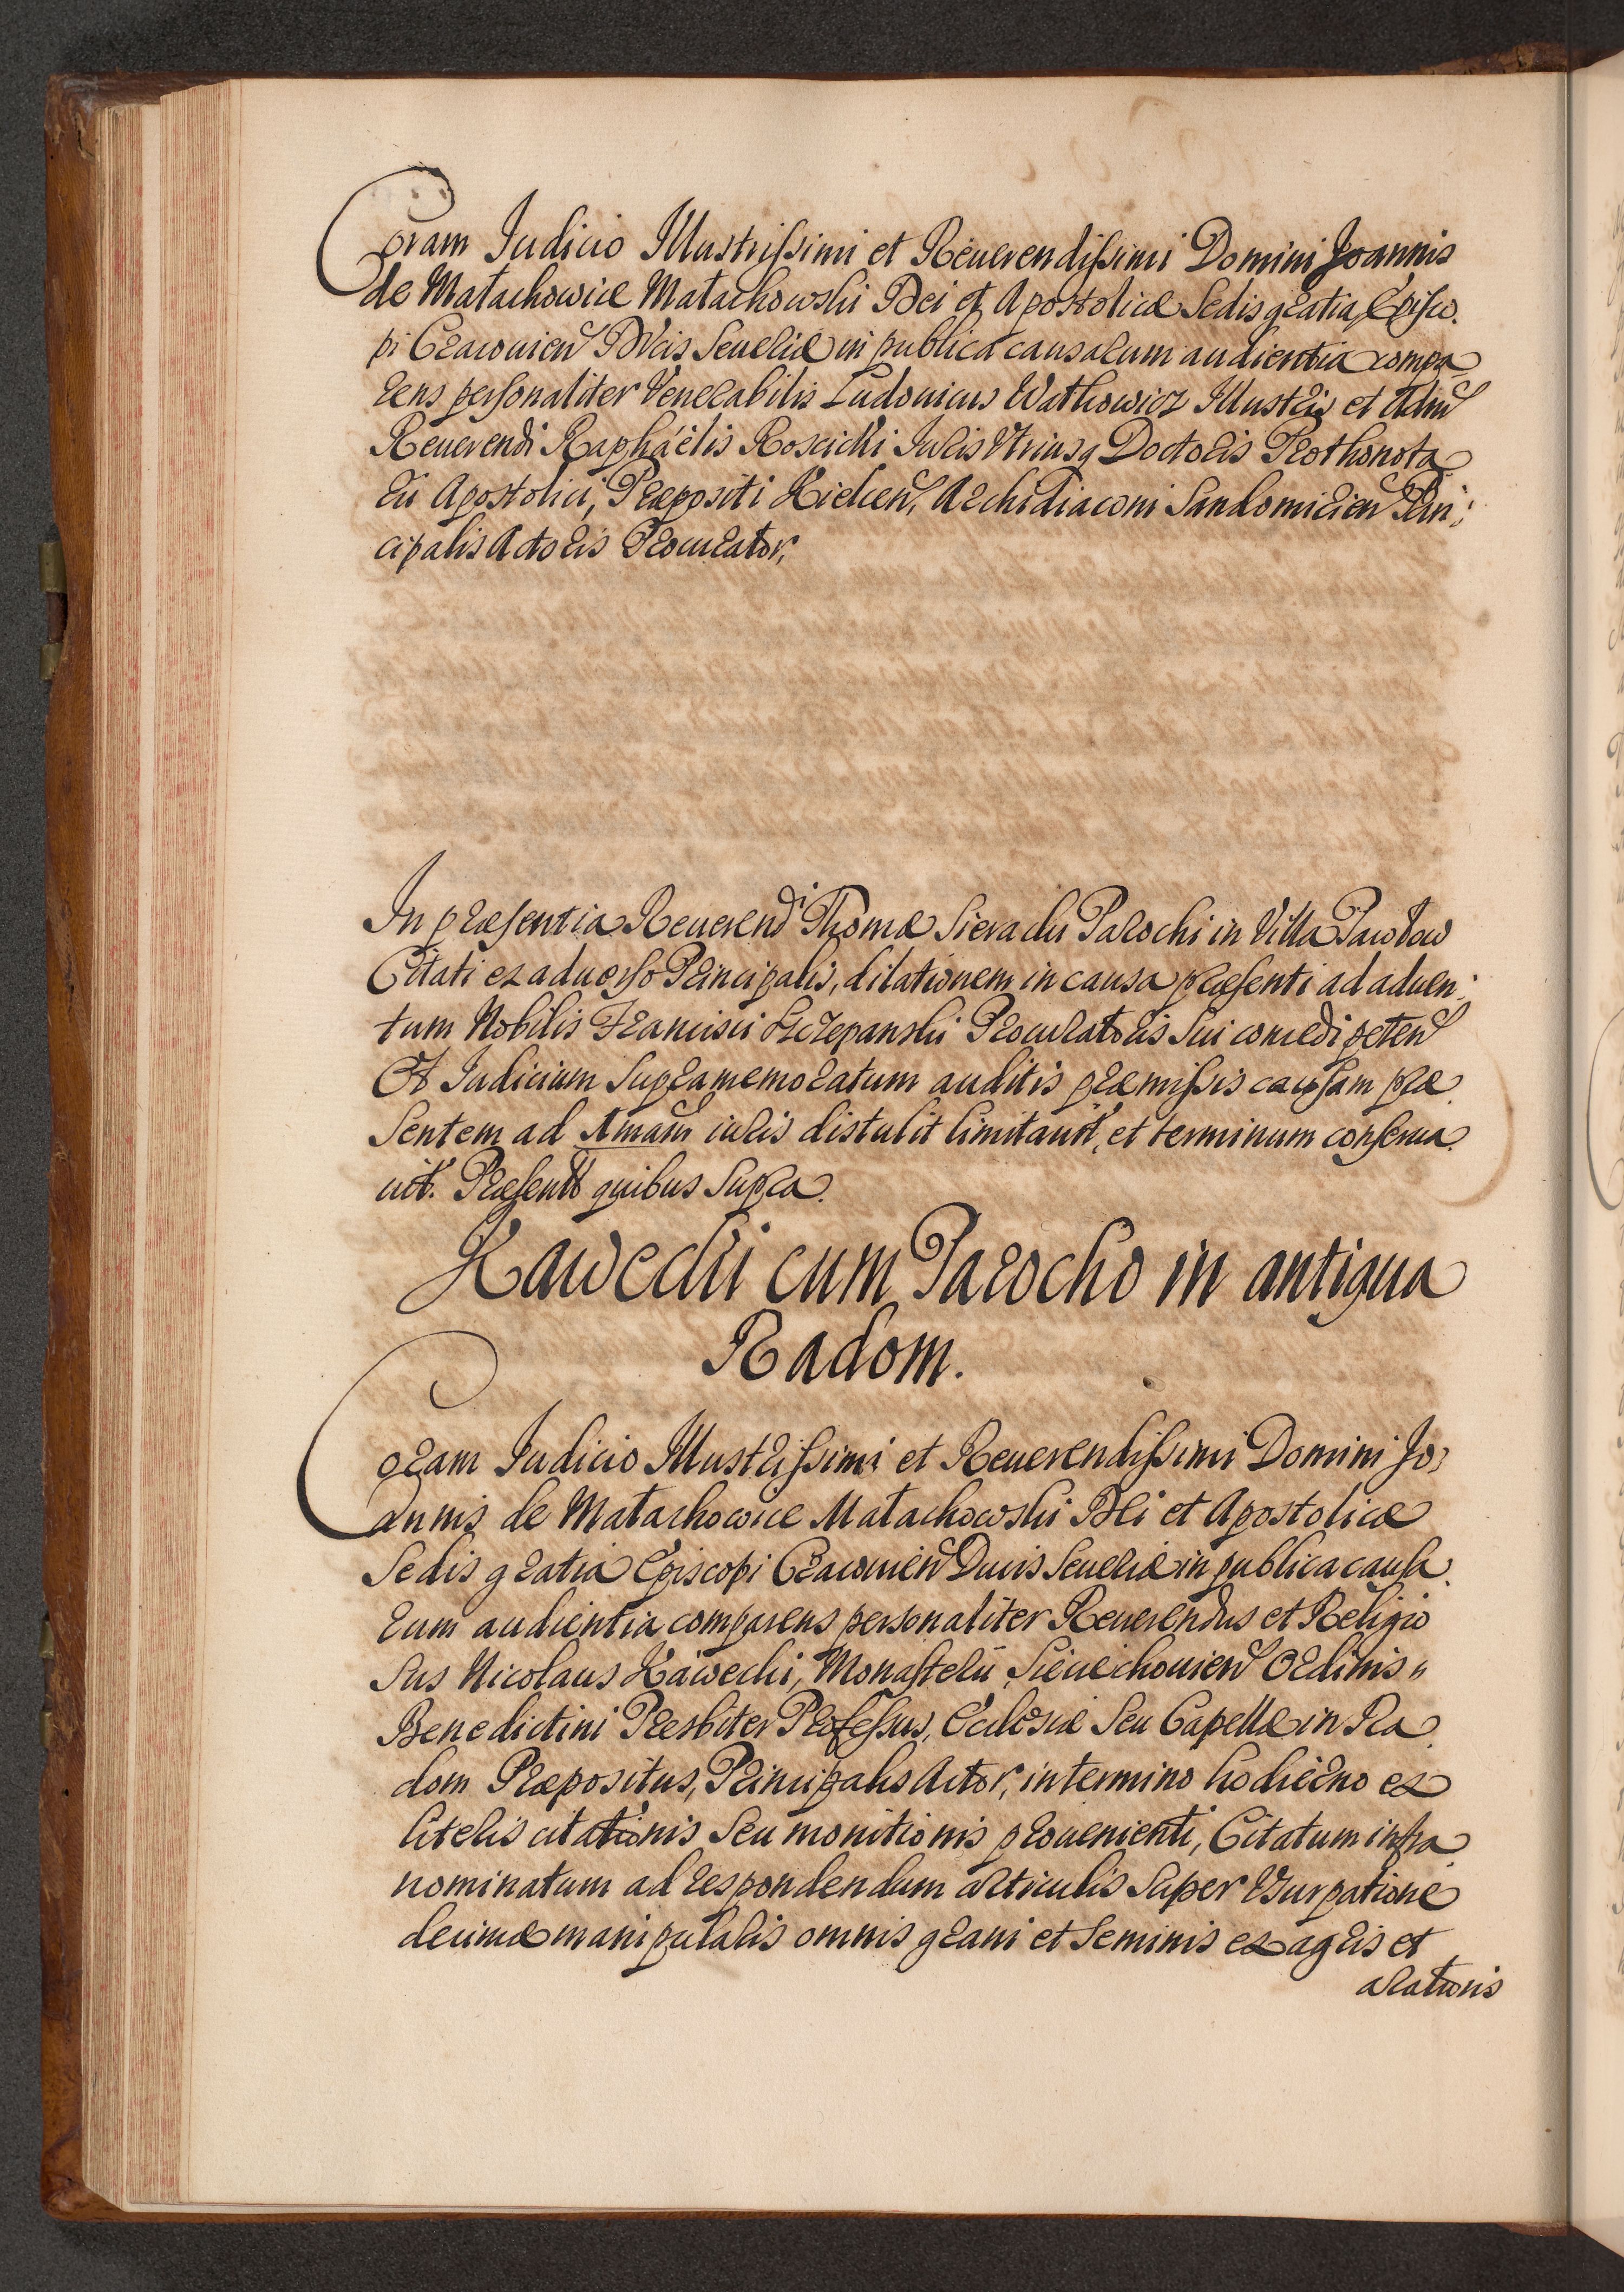 Coram Iudicio Illustrissimi et Reuerendissimi Domini Joannis
de Małachowice Małachowski Dei et Apostolicæ Sedis gratia Episco.
pi Cracouien Ducis Seueriæ in publica causarum audientia compa
rens personaliter Venerabilis Ludouicus Wathowicz Illustris et Adm
Reuerendi Raphaëlis Roscicki Iuris Vtriusq Doctoris Prothonota
rii Apostolici, Præpositi Kielcen, Archidiaconi Sandomirien Prin:
cipalis Actoris Procurator,
In præsentia Reuerendi Thomæ Sieracki Parochi in Villa Pawłow
Citati ex aduerso Principalis, dilationem in causa præsenti ad aduen:
tum Nobilis Francisci Szczepanski Procuratoris sui concedi peten
Et Iudicium supramemoratum auditis præmissis causam præ
sentem ad Amam iuris distulit limitauit, et terminum conserua
uit. Præsentt quibus supra.
Kawecki cum Parocho in antiqua
Radom.
Coram Iudicio Illustrissimi et Reuerendissimi Domini Jo:
annis de Małachowice Małachowski Dei et Apostolicæ
Sedis gratia Episcopi Cracouien Ducis Seueriæ in publica causa
rum audientia comparens personaliter Reuerendus et Religio
sus Nicolaus Kawecki, Monasterii Sieciechouien Ordinis
Benedictini Presbiter Professus, Ecclesiæ seu Capellæ in Ra
dom Præpositus, Principalis Actor, in termino hodierno ex
literis citationis seu monitionis prouenienti, Citatum infra
nominatum ad respondendum articulis super Vsurpatione
decimæ manipularis omnis grani et seminis ex agris et
arationis